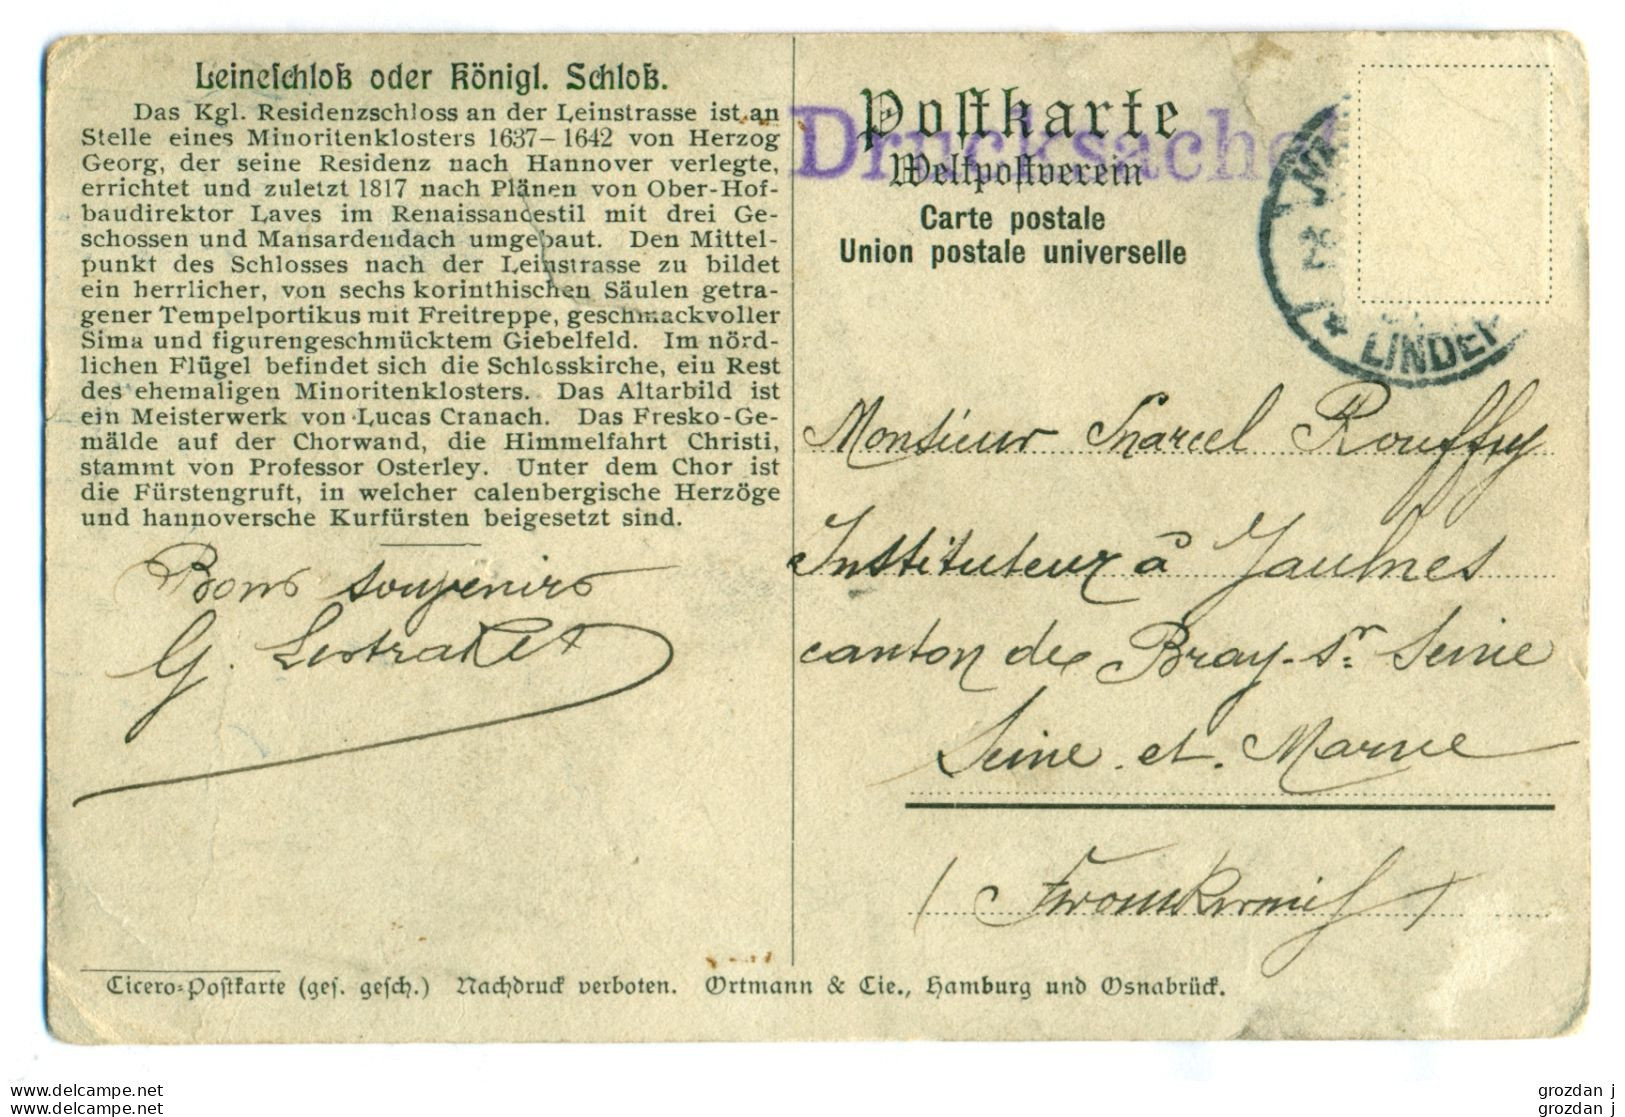 Leineschloß oder Königl. Schloß.
Das Kgl. Residenzschloss an der Leinstrasse ist an
Stelle eines Minoritenklosters 1637–1642 von Herzog
Georg, der seine Residenz nach Hannover verlegte,
errichtet und zuletzt 1817 nach Plänen von Ober-Hof-
baudirektor Laves im Renaissancestil mit drei Ge-
schossen und Mansardendach umgebaut. Den Mittel-
punkt des Schlosses nach der Leinstrasse zu bildet
ein herrlicher, von sechs korinthischen Säulen getra-
gener Tempelportikus mit Freitreppe, geschmackvoller
Sima und figurengeschmücktem Giebelfeld. Im nörd-
lichen Flügel befindet sich die Schlosskirche, ein Rest
des ehemaligen Minoritenklosters. Das Altarbild ist
ein Meisterwerk von Lucas Cranach. Das Fresko-Ge-
mälde auf der Chorwand, die Himmelfahrt Christi,
stammt von Professor Osterley. Unter dem Chor ist
die Fürstengruft, in welcher calenbergische Herzöge
und hannoversche Kurfürsten beigesetzt sind.
Bons souvenirs
G.
Postkarte
Drucksache
Weltpostverein
Carte postale
Union postale universelle
29
* LINDEN
Monsieur Marcel Rouffy
Instituteur à Jaulnes
canton de Bray-sr Seine
Seine et Marne
Cicero-Postkarte (ges. gesch.) Nachdruck verboten. Ortmann & Cie., Hamburg und Osnabrück.
delcampe.net
delcampe.net
grozdan j
grozdan j